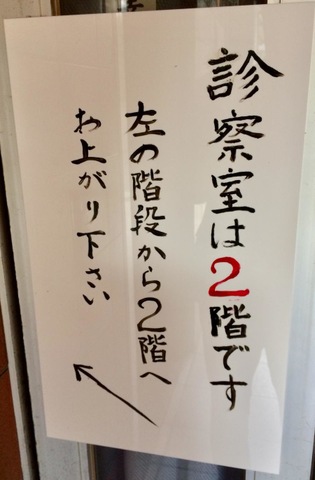 診察室は2階です
左の階段から2階へ
お上がり下さい